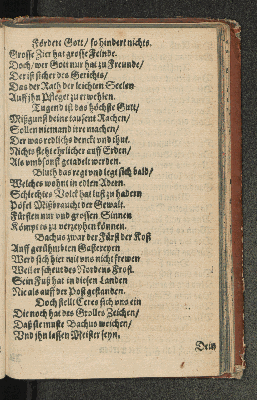 Fördert Gott/ so hindert nichts.
Grosse Zier hat grosse Feinde.
Doch/ wer Gott nur hat zu Freunde/
Der ist sicher des Gerichts/
Das der Rath der leichten Seelen
Auff ihn pfleget zu erwehlen.
Tugend ist das höchste Gutt/
Mißgunst deine tausent Rachen/
Sollen niemand irre machen/
Der was redlichs denckt und thut.
Nichts steht ehrlicher auff Erden/
Als umbsonst getadelt werden.
Bluth das regt und legt sich bald/
Welches wohnt in edlen Adern.
Schlechtes Volck hat lust zu hadern
Pöfel Mißbraucht der Gewalt.
Fürsten nur und grossen Sinnen
Kömpt es zu verzeyhen können.
Bachus zwar der Fürst der Kost
Auff gerühmbten Gastereyen
Werd sich hier mit uns nicht frewen
Weil er scheut des Nordens Frost.
Sein Fuß hat in diesen Landen
Nie als auff der Post gestanden.
Doch stellt Ceres sich uns ein
Die noch hat des Grolles Zeichen/
Daß sie muste Bachus weichen/
Und ihn lassen Meister seyn.
Dein